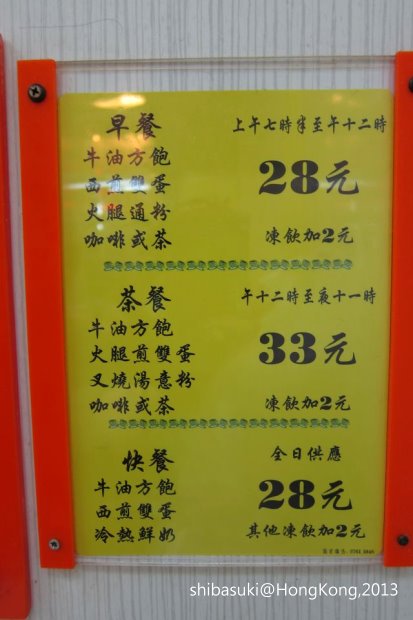 早餐
上午七時半至午十二時
牛油方飽
西煎雙蛋
28元
火腿通粉
咖啡或茶
凍飲加2元
茶餐
午十二時至夜十一時
牛油方飽
火腿煎雙蛋
33元
叉燒湯意粉
咖啡或茶
凍飲加2元
快餐
全日供應
牛油方飽
西煎雙蛋
28元
冷熱鮮奶
其他凍飲加2元
shibasuki@HongKong,2013